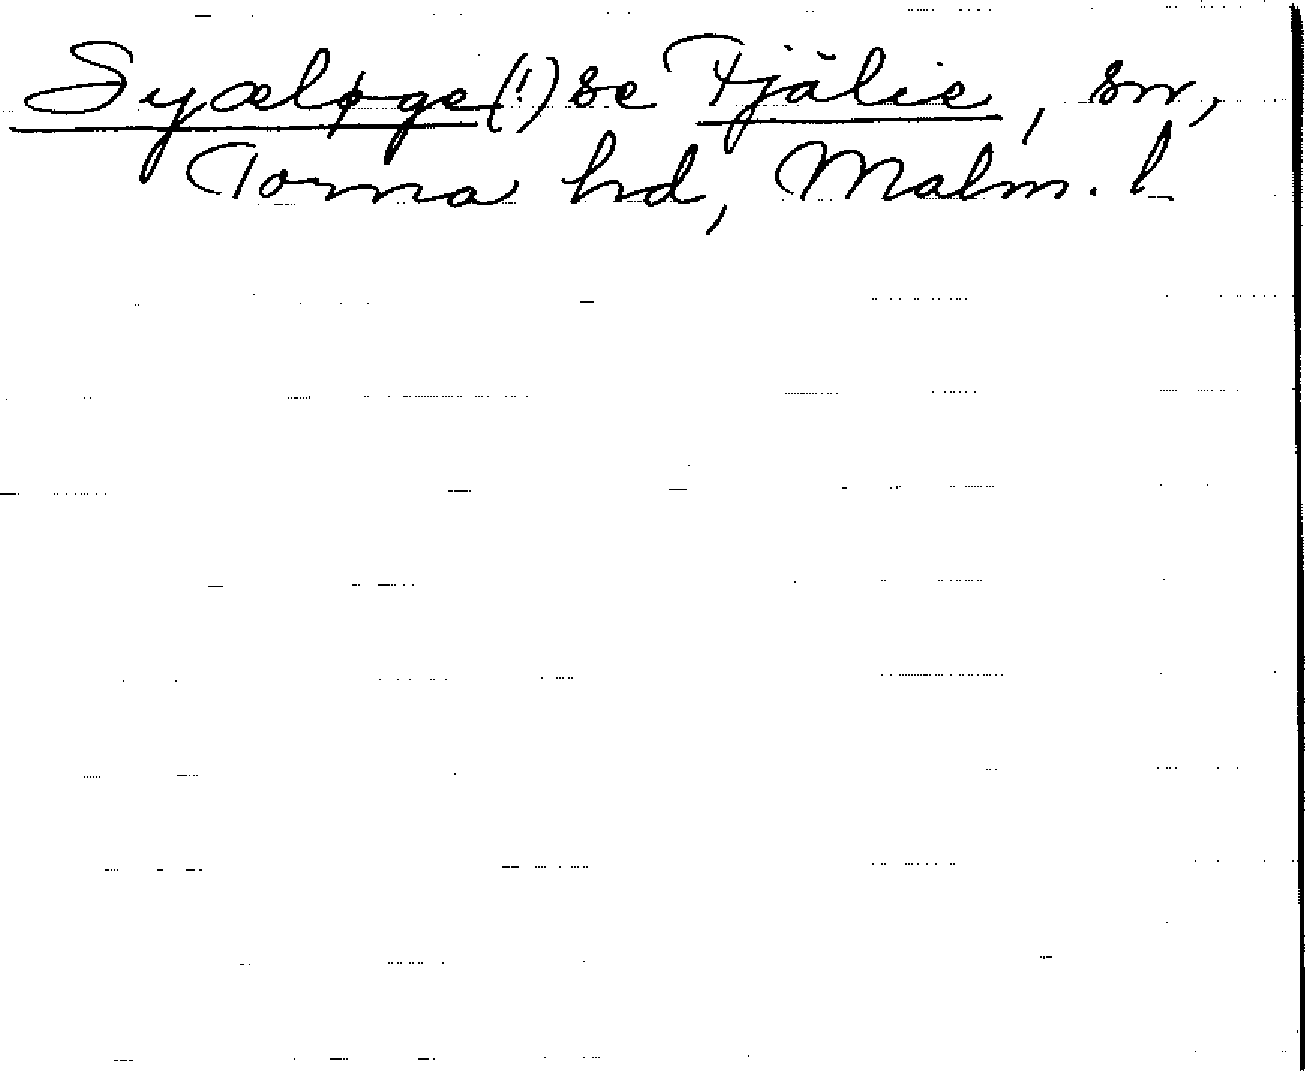 Syæløge(!) se Fjälie, sn,
Torna hd, Malm. l